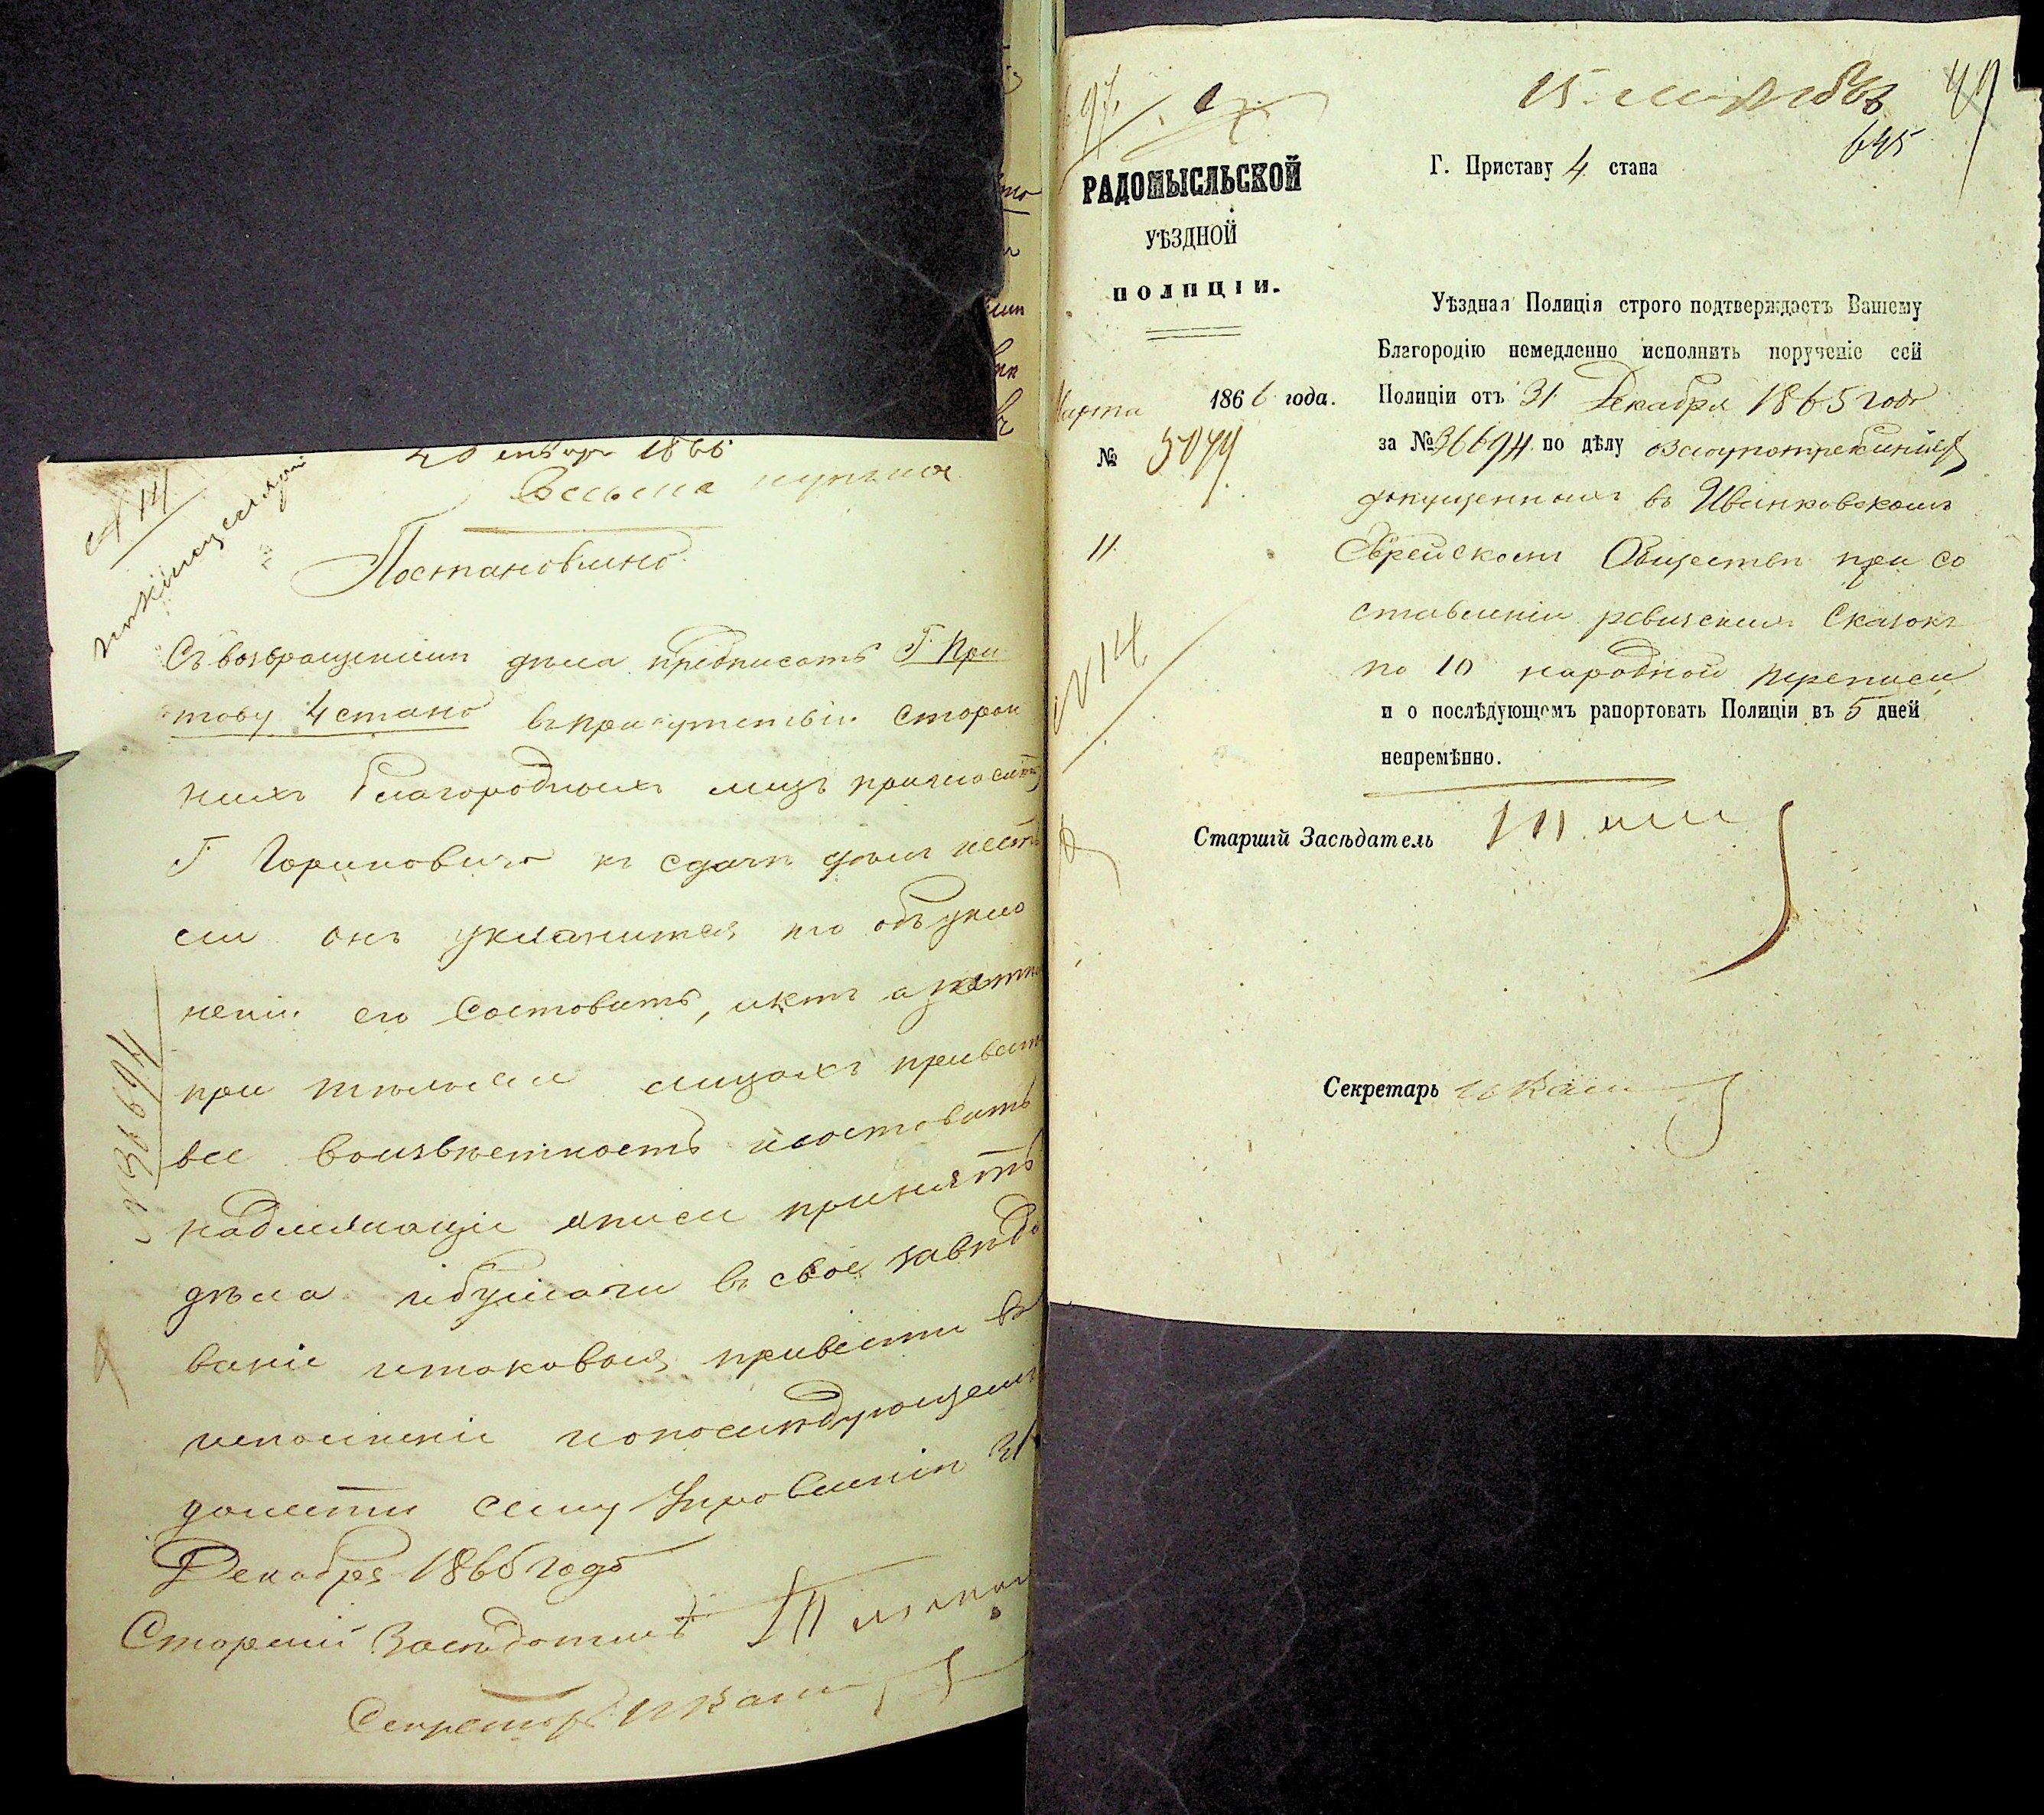 20 января 1866
Весьма нужное
Постановлено
Съ возвращениемъ дела предписать Г. При
ставу 4 стана въ присутствіи сторон
нихъ благородныхъ лицъ пригласить
Г Гориновича къ сдаче делъ
если онъ уклонится то объ укло
неніи его составить, актъ а
при лицахъ привесть
все воизвестность исоставить
надлежащіе описи принять
дѣла ибумаги въ свое заведы
ваніе итаковыя привести въ
исполненіе ипопослѣдующемъ
донести сему Управленію 31
Декабря 1865 года
Старшій Заседатель
Секретарь
№ 36694
97.
15
49
645
РАДОМЫСЛЬСКОЙ
УѢЗДНОЙ
ПОЛИЦІИ.
Марта 1866 года.
№ 5077
11
№ 14
Г. Приставу 4 стана
Уѣздная Полиція строго подтверждаетъ Вашему
Благородію немедленно исполнить порученіе сей
Полиціи отъ 31 Декабря 1865 года
за № 36694 по дѣлу о злоупотребленіях
допущенныхъ въ Иванковскомъ
Еврейскомъ Обществе при со
ставленіи ревизскихъ Сказокъ
по 10 народной переписи
и о послѣдующемъ рапортовать Полиціи въ 5 дней
непремѣнно.
Старшій Засѣдатель
Секретарь